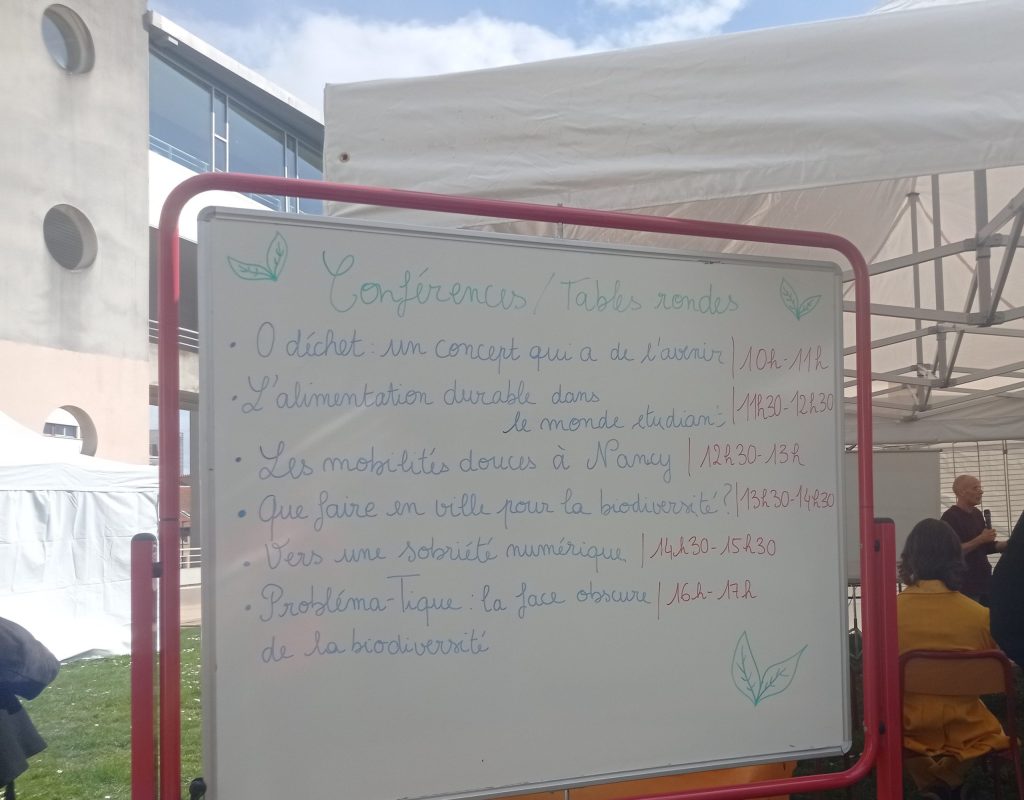 Conférences / Tables rondes
• O déchet : un concept qui a de l'avenir | 10h - 11h
• L'alimentation durable dans
le monde etudiant | 11h30 - 12h30
• Les mobilités douces à Nancy | 12h30 - 13h
• Que faire en ville pour la biodiversité ? | 13h30 - 14h30
• Vers une sobriété numérique | 14h30 - 15h30
• Probléma-Tique : la face obscure | 16h - 17h
de la biodiversité